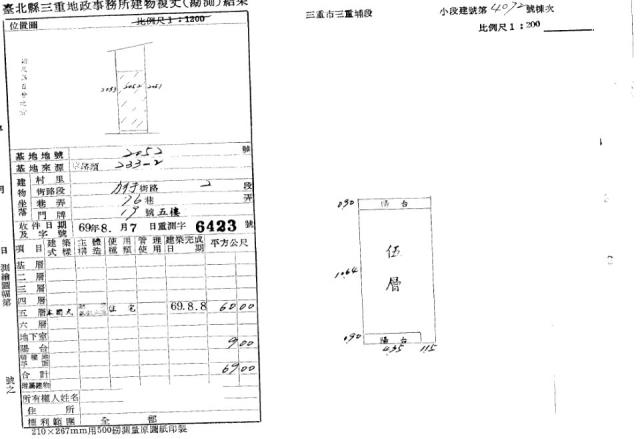 臺北縣三重地政事務所建物複丈(勘測)結果
位置圖
比例尺1:1200
2053 2052 2051
基地地號 2052 號
基地來源 233-2
建物坐落
村里
街路段 街路 2 段
巷弄 76巷 弄
門牌 19號五樓
收件日期及字號 69年8月7日重測字6423號
項目 建築式樣 主體構造 使用種類 管理使用 建築完成日期 平方公尺
基層
二層
三層
四層
五層 本國式 住宅 69.8.8 60.00
六層
地下室
陽台 9.00
合計 69.00
附屬建物
所有權人姓名
住所
權利範圍 全部
210×267mm用500磅測量原圖紙印製
測繪圖幅第
號之
三重市三重埔段 小段建號第4072號棟次
比例尺1:200
0.90 陽台
10.64 伍層
0.90 陽台
4.35 1.15